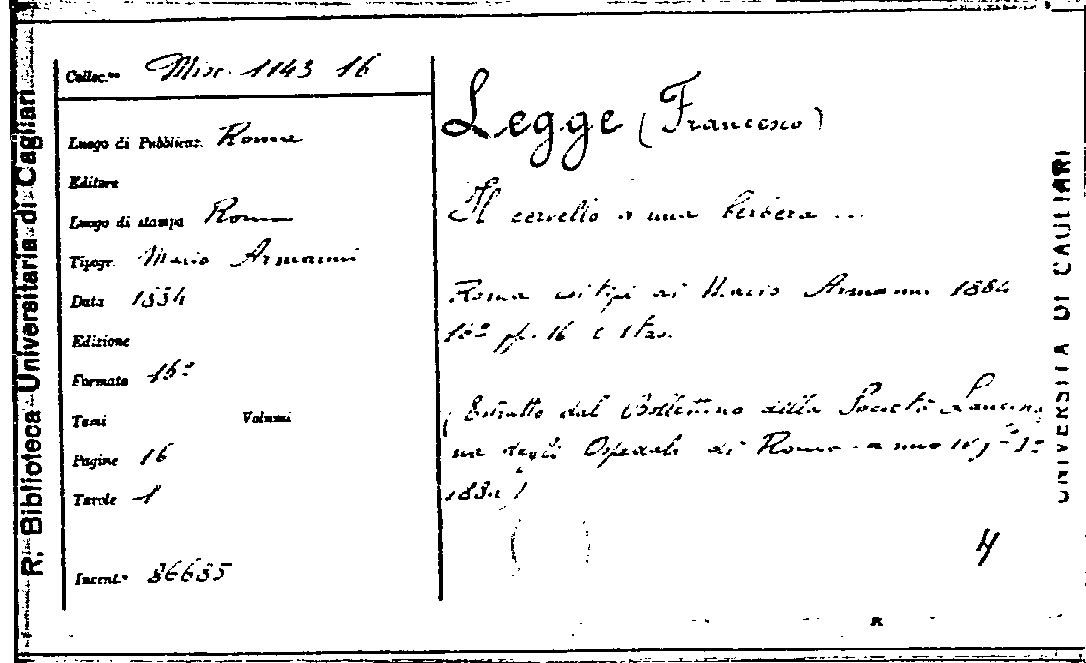 R. Biblioteca Universitaria di Cagliari
Colloc.ne Misc. 1143 16
Luogo di Pubblicaz. Roma
Editore
Luogo di stampa Roma
Tipogr. Mario Armanni
Data 1884
Edizione
Formato 16°
Tomi Volumi
Pagine 16
Tavole 1
Incent.° 86685
Legge (Francesco)
Il cervello di una berbera ...
Roma coi tipi di Mario Armanni 1884
16° pp. 16 1 tav.
(Estratto dal Bollettino della Società Lancisia
na degli Ospedali di Roma anno
188
4
UNIVERSITÀ DI CAGLIARI